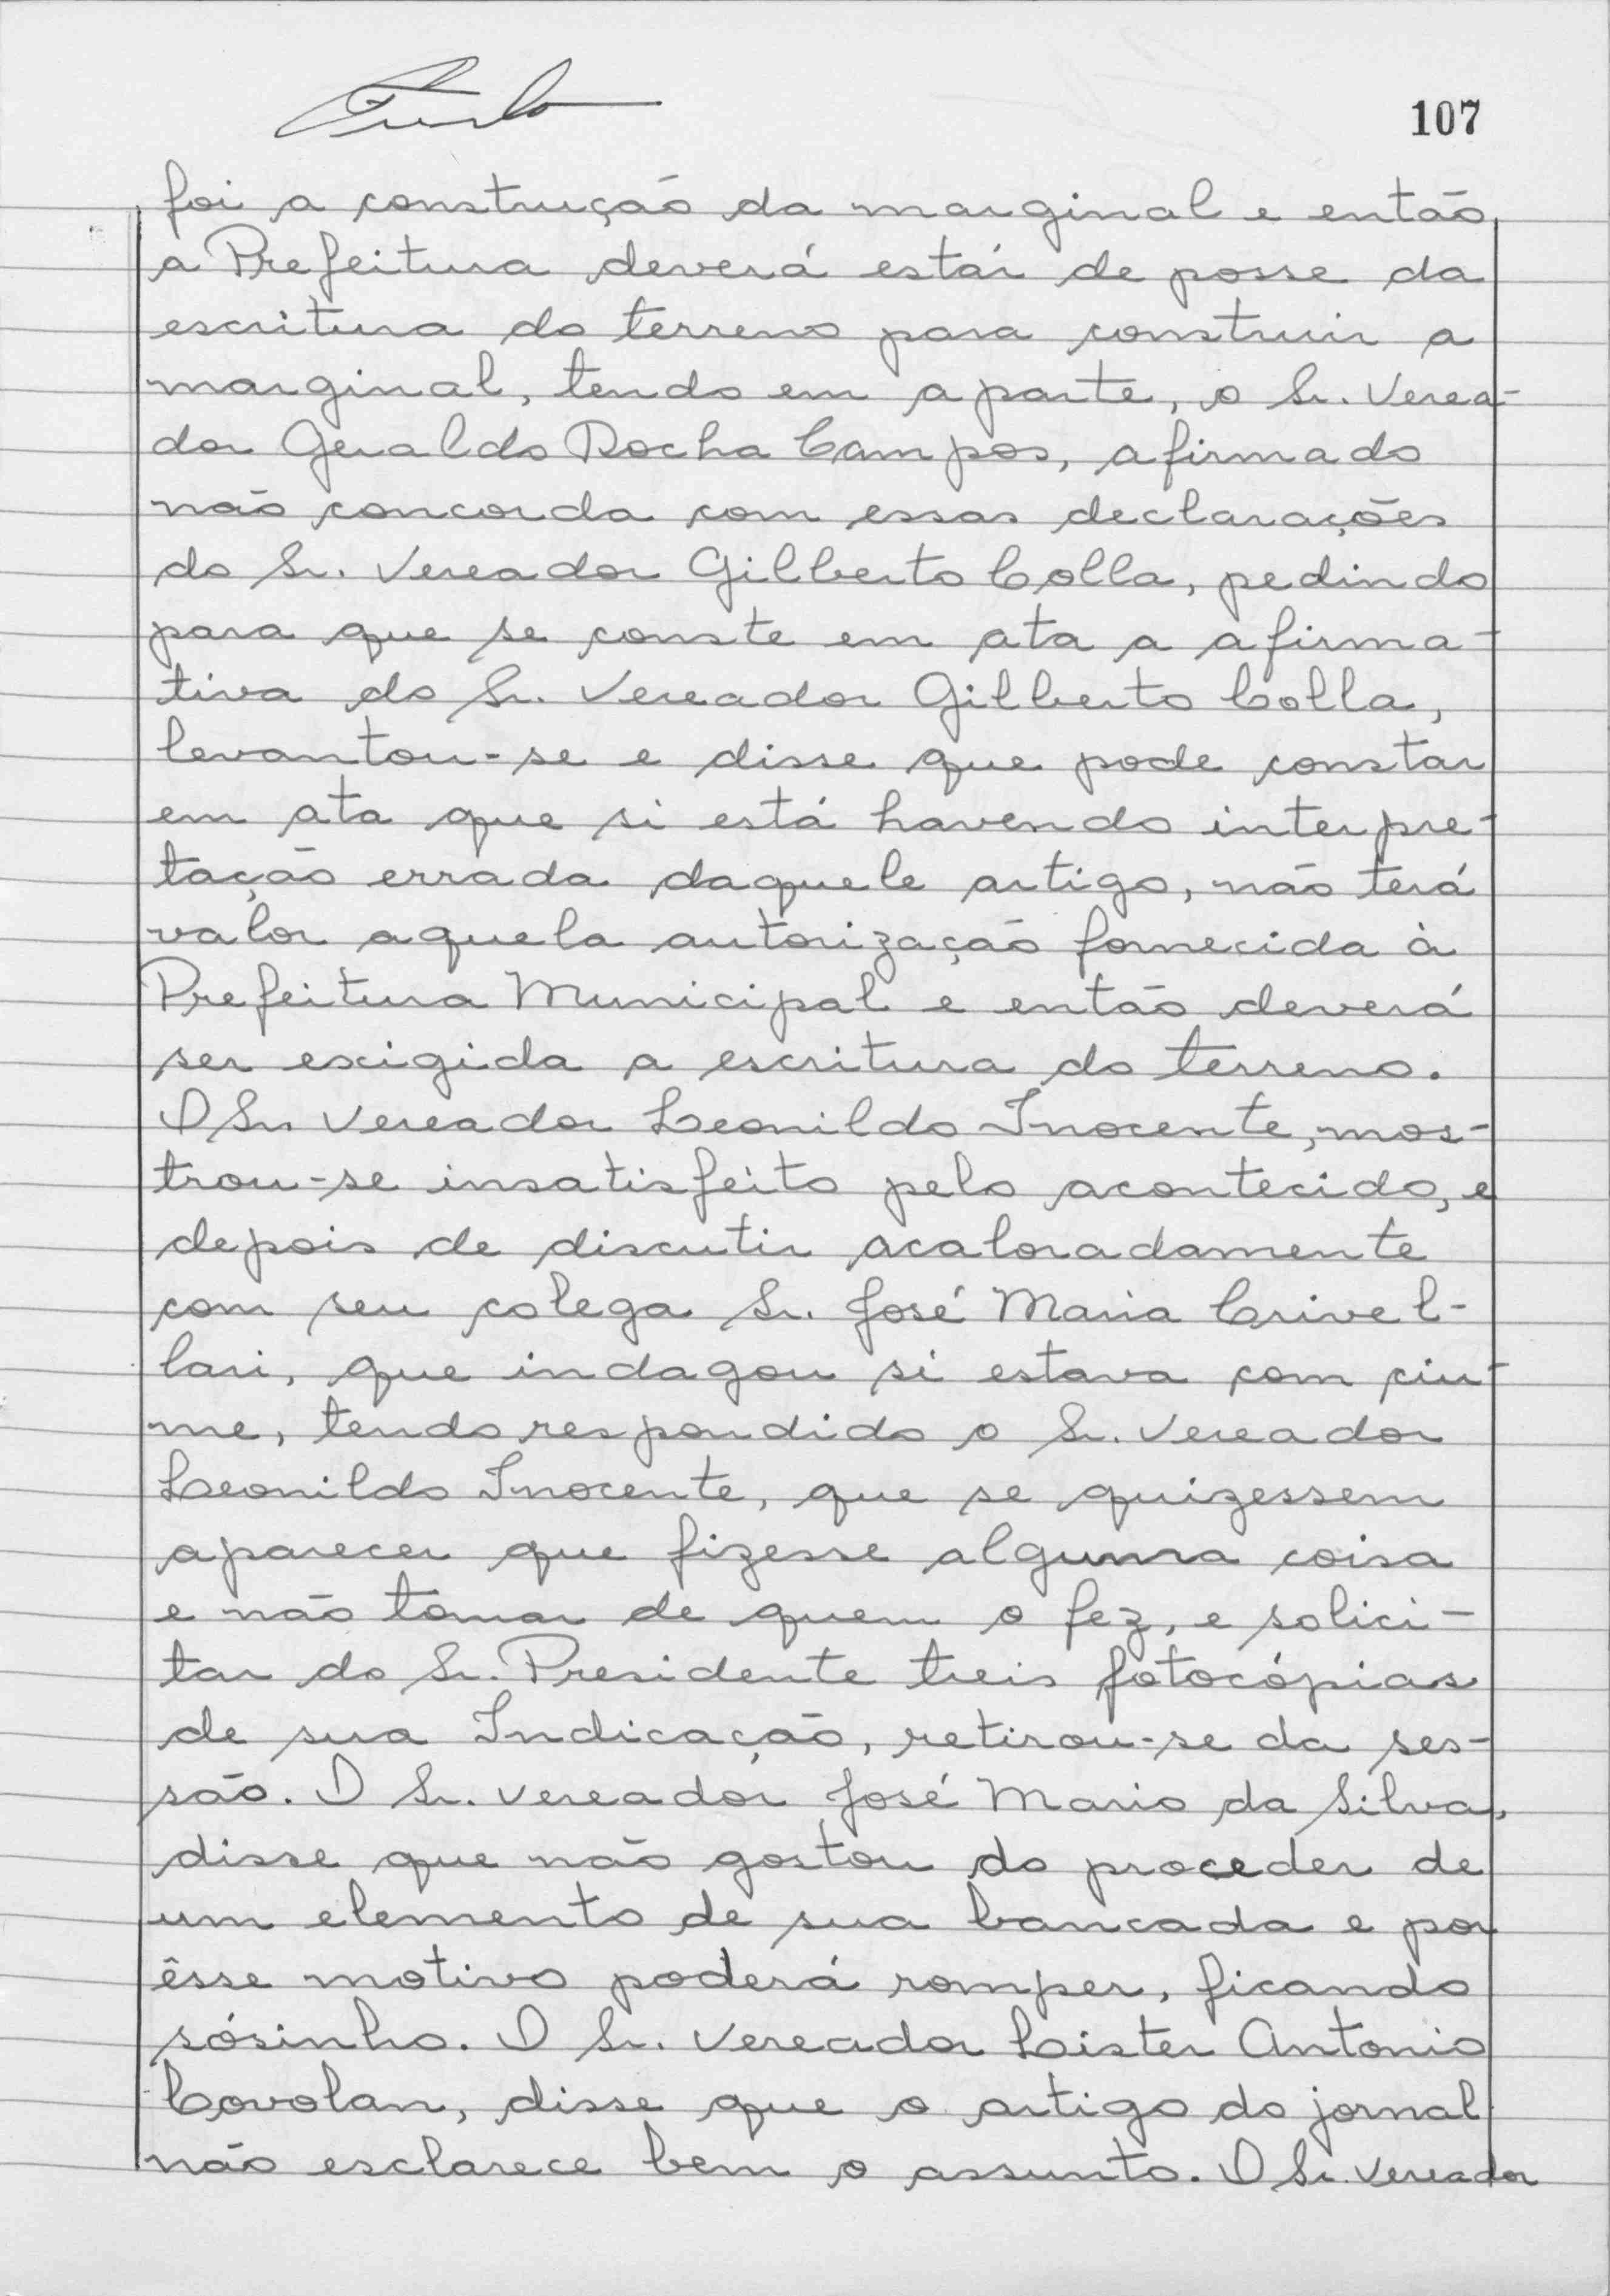 107
foi a construção da marginal e então,
a Prefeitura deverá estár de posse da
escritura do terreno para construir a
marginal, tendo em a parte, o Sr. Verea-
dor Geraldo Rocha Campos, afirmado
não concorda com essas declarações
do Sr. Vereador Gilberto Colla, pedindo
para que se conste em ata a afirma-
tiva do Sr. Vereador Gilberto Colla,
levantou-se e disse que pode constar
em ata que si está havendo interpre-
tação errada daquele artigo, não terá
valor aquela autorização fornecida à
Prefeitura Municipal e então deverá
ser exigida a escritura do terreno.
O Sr. Vereador Leonildo Inocente, mos-
trou-se insatisfeito pelo acontecido, e
depois de discutir acaloradamente
com seu colega Sr. José Maria Crivel-
lari, que indagou si estava com ciu-
me, tendo respondido o Sr. Vereador
Leonildo Inocente, que se quizessem
aparecer que fizesse alguma coisa
e não tomar de quem o fez, e solici-
tar do Sr. Presidente treis fotocópias
de sua Indicação, retirou-se da ses-
são. O Sr. vereador José Mario da Silva,
disse que não gostou do proceder de
um elemento de sua bancada e por
êsse motivo poderá romper, ficando
sósinho. O Sr. Vereador Lister Antonio
Covolan, disse que o artigo do jornal
não esclarece bem o assunto. O Sr. Vereador